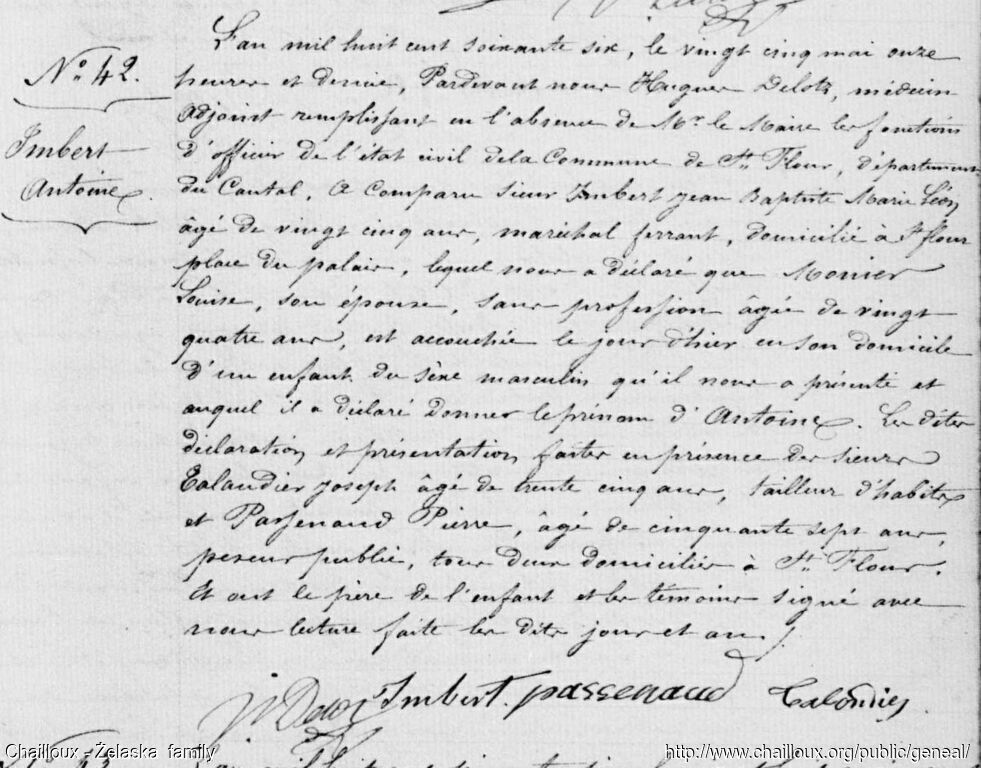 L'an mil huit cent soixante six, le vingt cinq mai onze
N° 42.
heures et demie, Pardevant nous Hugues Delotz, médecin
adjoint remplissant en l'absence de Mr. le Maire les fonctions
Imbert
d'officier de l'état civil dela Commune de St. Flour, département
Antoine.
du Cantal, a comparu sieur Imbert Jean Baptiste Marie Léon
âgé de vingt cinq ans, maréchal ferrant, domicilié à St flour
place du palais, lequel nous a déclaré que Monier
Louise, son épouse, sans profession âgée de vingt
quatre ans, est accouchée le jour d'hier en son domicile
d'un enfant du sèxe masculin qu'il nous a présenté et
auquel il a déclaré donner le prénom d'Antoine. Les dites
déclaration et présentation faites en présence des sieurs
Talandier Joseph âgé de trente cinq ans, tailleur d'habits
et Passenaud Pierre, âgé de cinquante sept ans,
peseur public, tous deux domiciliés à St. Flour.
Et ont le père de l'enfant et les témoins signé avec
nous lecture faite les dits jour et an.
Imbert. passenaud Talandier
Chailloux - Żelaska family
http://www.chailloux.org/public/geneal/